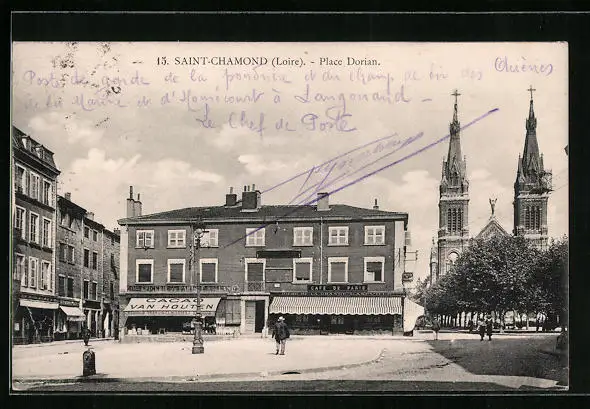 15. SAINT-CHAMOND (Loire). - Place Dorian.
Poste de garde de la poudrerie et du champ de tir des Chênes
de la Marine et d'Homécourt à Langonand
Le Chef de Poste
CAFÉ DE PARIS
CACAO
VAN HOUTEN